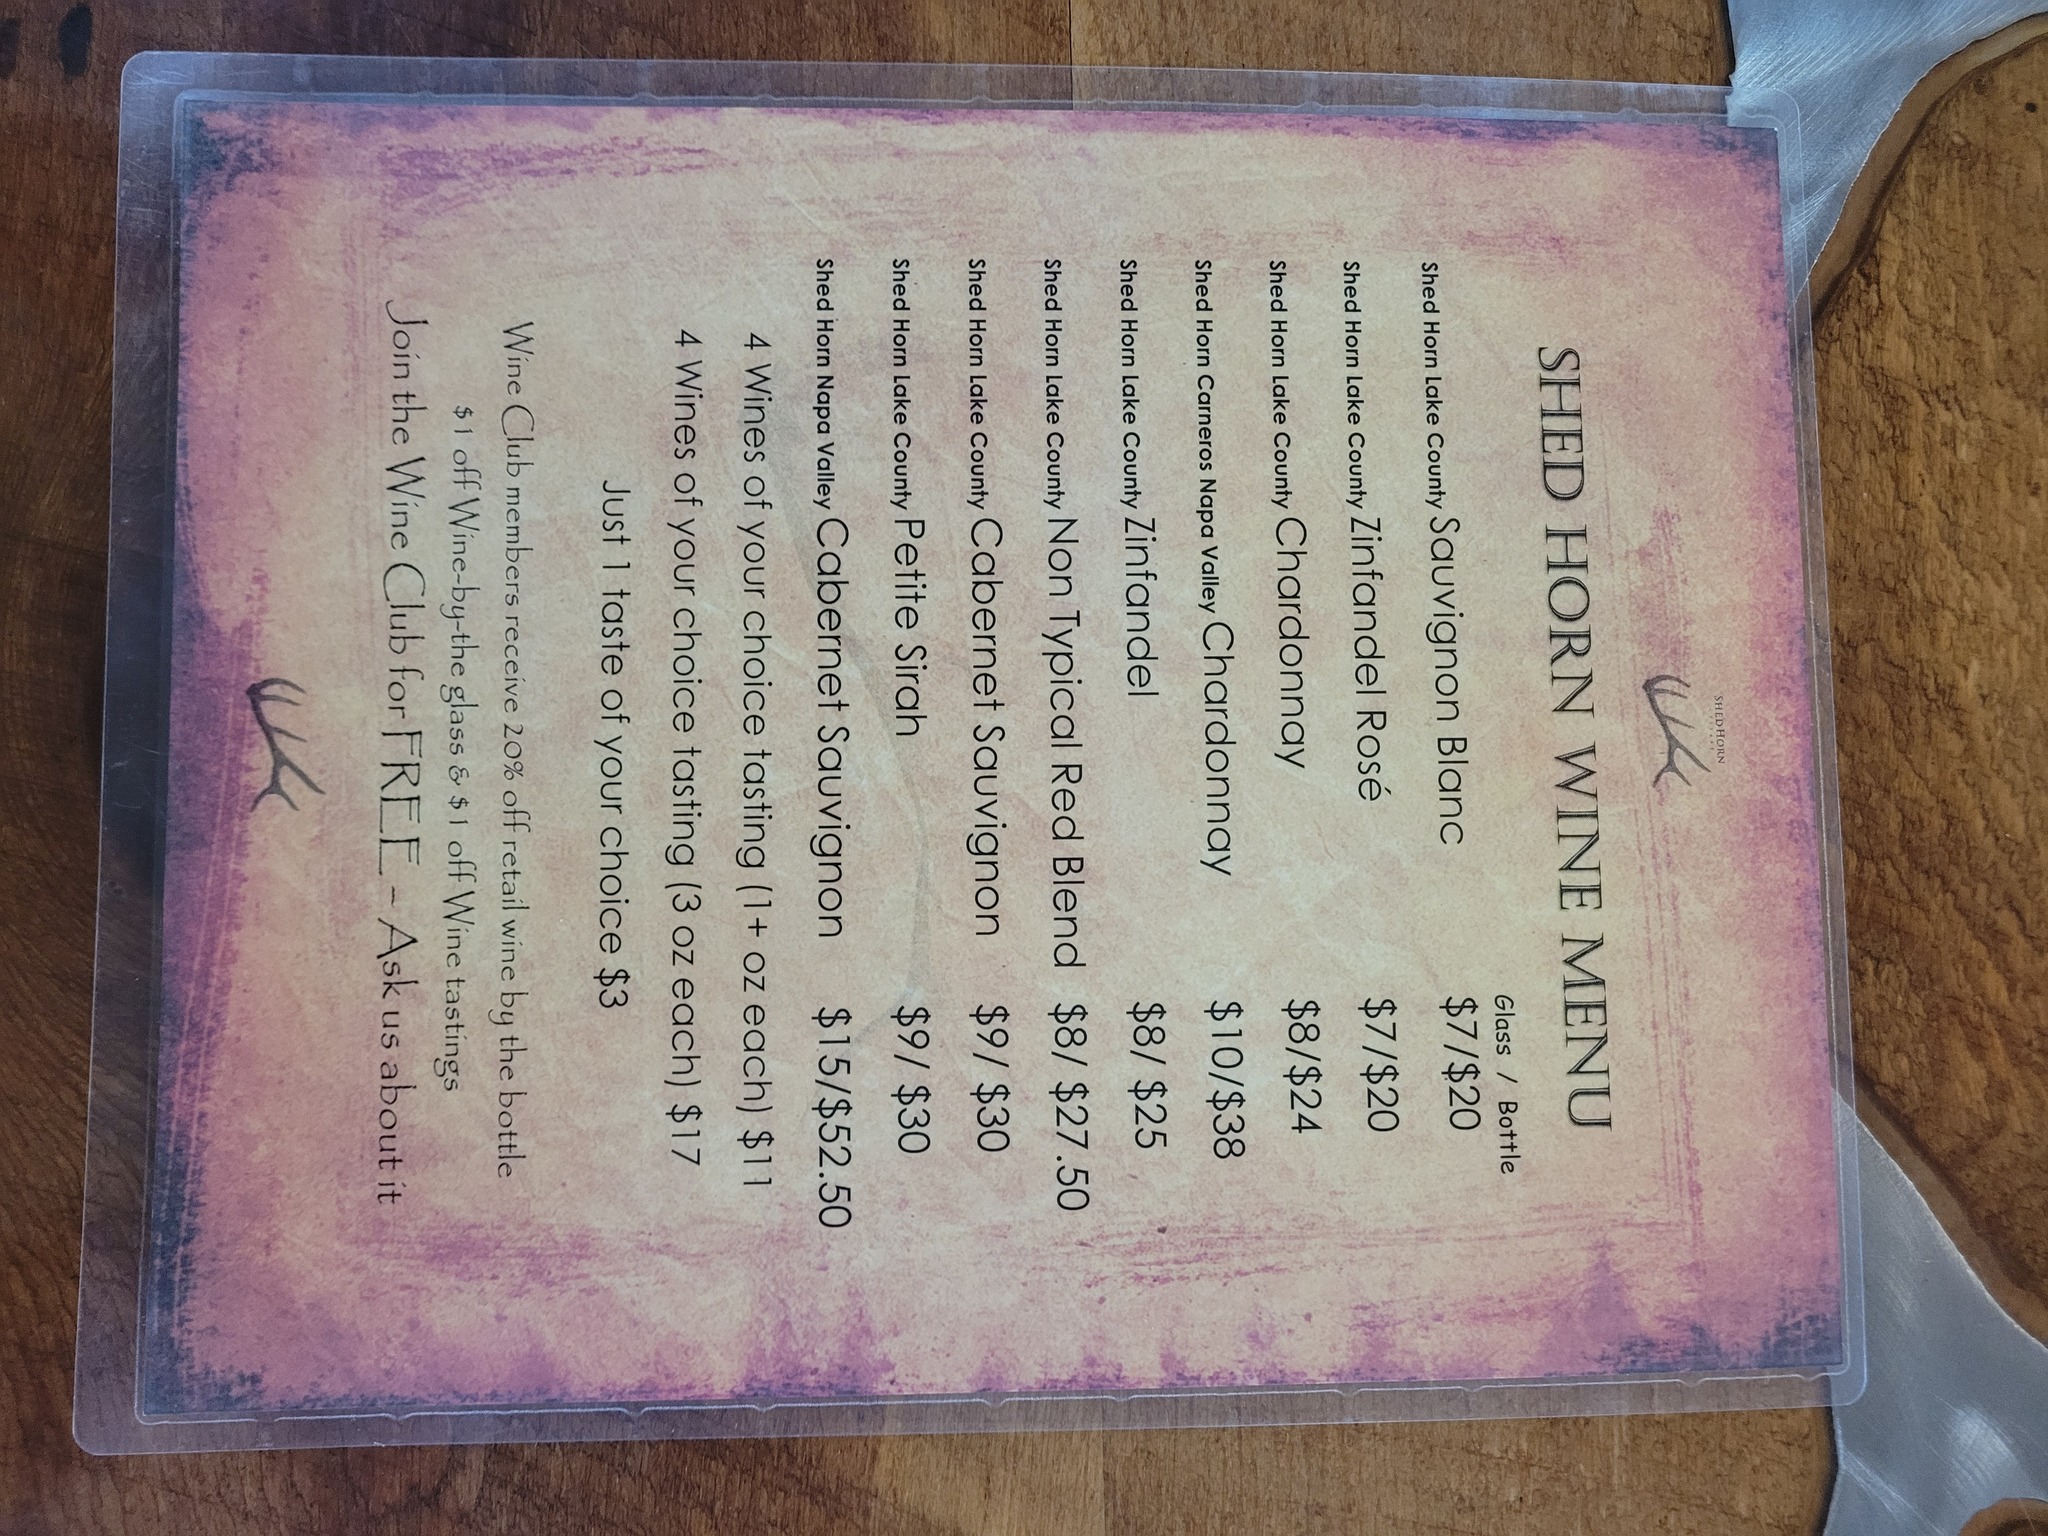 SHED HORN
SHED HORN WINE MENU
Glass / Bottle
Shed Horn Lake County Sauvignon Blanc $7/$20
Shed Horn Lake County Zinfandel Rosé $7/$20
Shed Horn Lake County Chardonnay $8/$24
Shed Horn Carneros Napa Valley Chardonnay $10/$38
Shed Horn Lake County Zinfandel $8/ $25
Shed Horn Lake County Non Typical Red Blend $8/ $27.50
Shed Horn Lake County Cabernet Sauvignon $9/ $30
Shed Horn Lake County Petite Sirah $9/ $30
Shed Horn Napa Valley Cabernet Sauvignon $15/$52.50
4 Wines of your choice tasting (1+ oz each) $11
4 Wines of your choice tasting (3 oz each) $17
Just 1 taste of your choice $3
Wine Club members receive 20% off retail wine by the bottle
$1 off Wine-by-the glass & $1 off Wine tastings
Join the Wine Club for FREE - Ask us about it